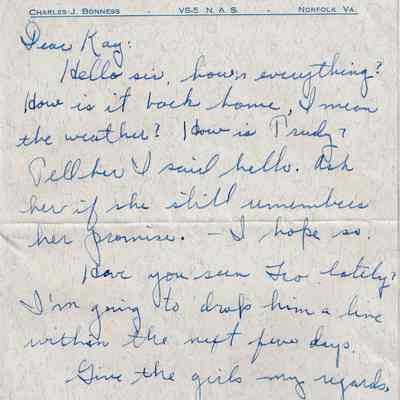 CHARLES J. BONNESS - VS-5 N. A. S. - NORFOLK VA.
Dear Kay:
Hello sis, how's everything?
How is it back home, I mean
the weather? How is Trudy?
Tell her I said hello. Ask
her if she still remembers
her promise. - I hope so.
Have you seen Leo lately?
I'm going to drop him a line
within the next few days.
Give the girls my regards,